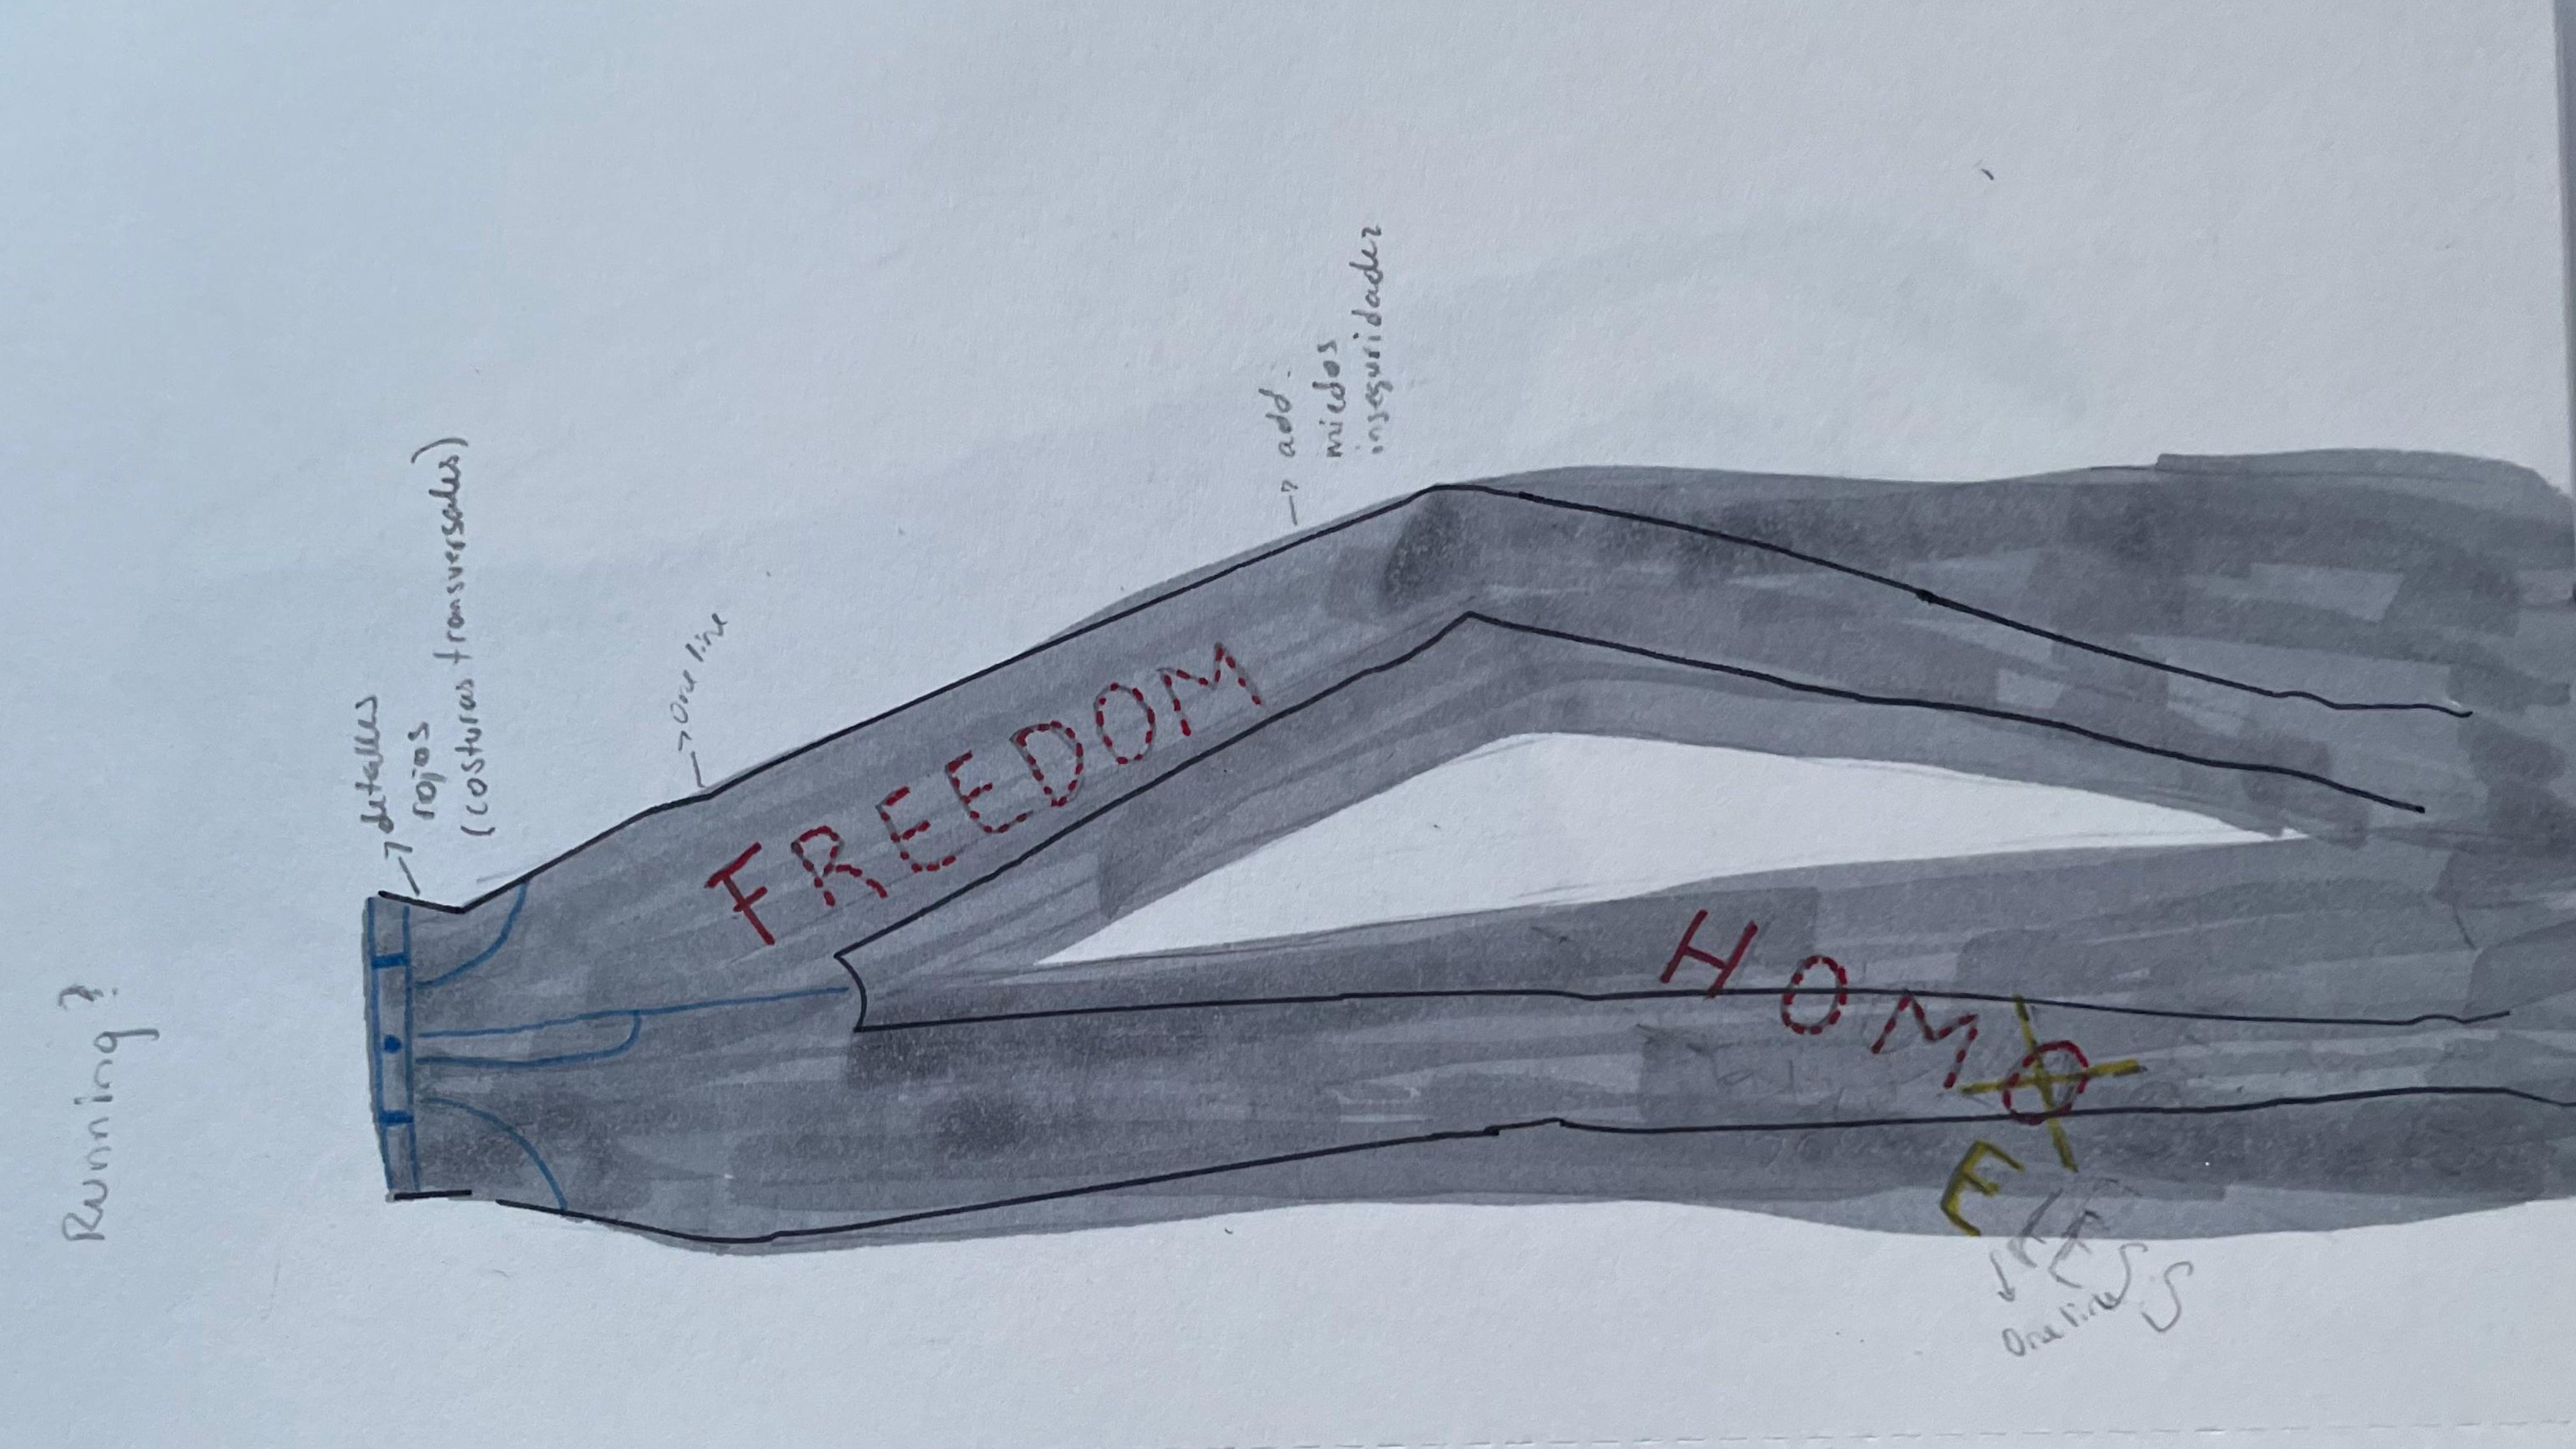 Running?
detalles
rojos
(costuras transversales)
One line
FREEDOM
add:
miedos
inseguridades
HOMO
E
LESS
One line